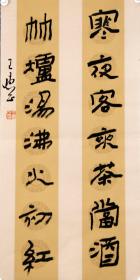 寒夜客來茶當酒
竹爐湯沸火初紅